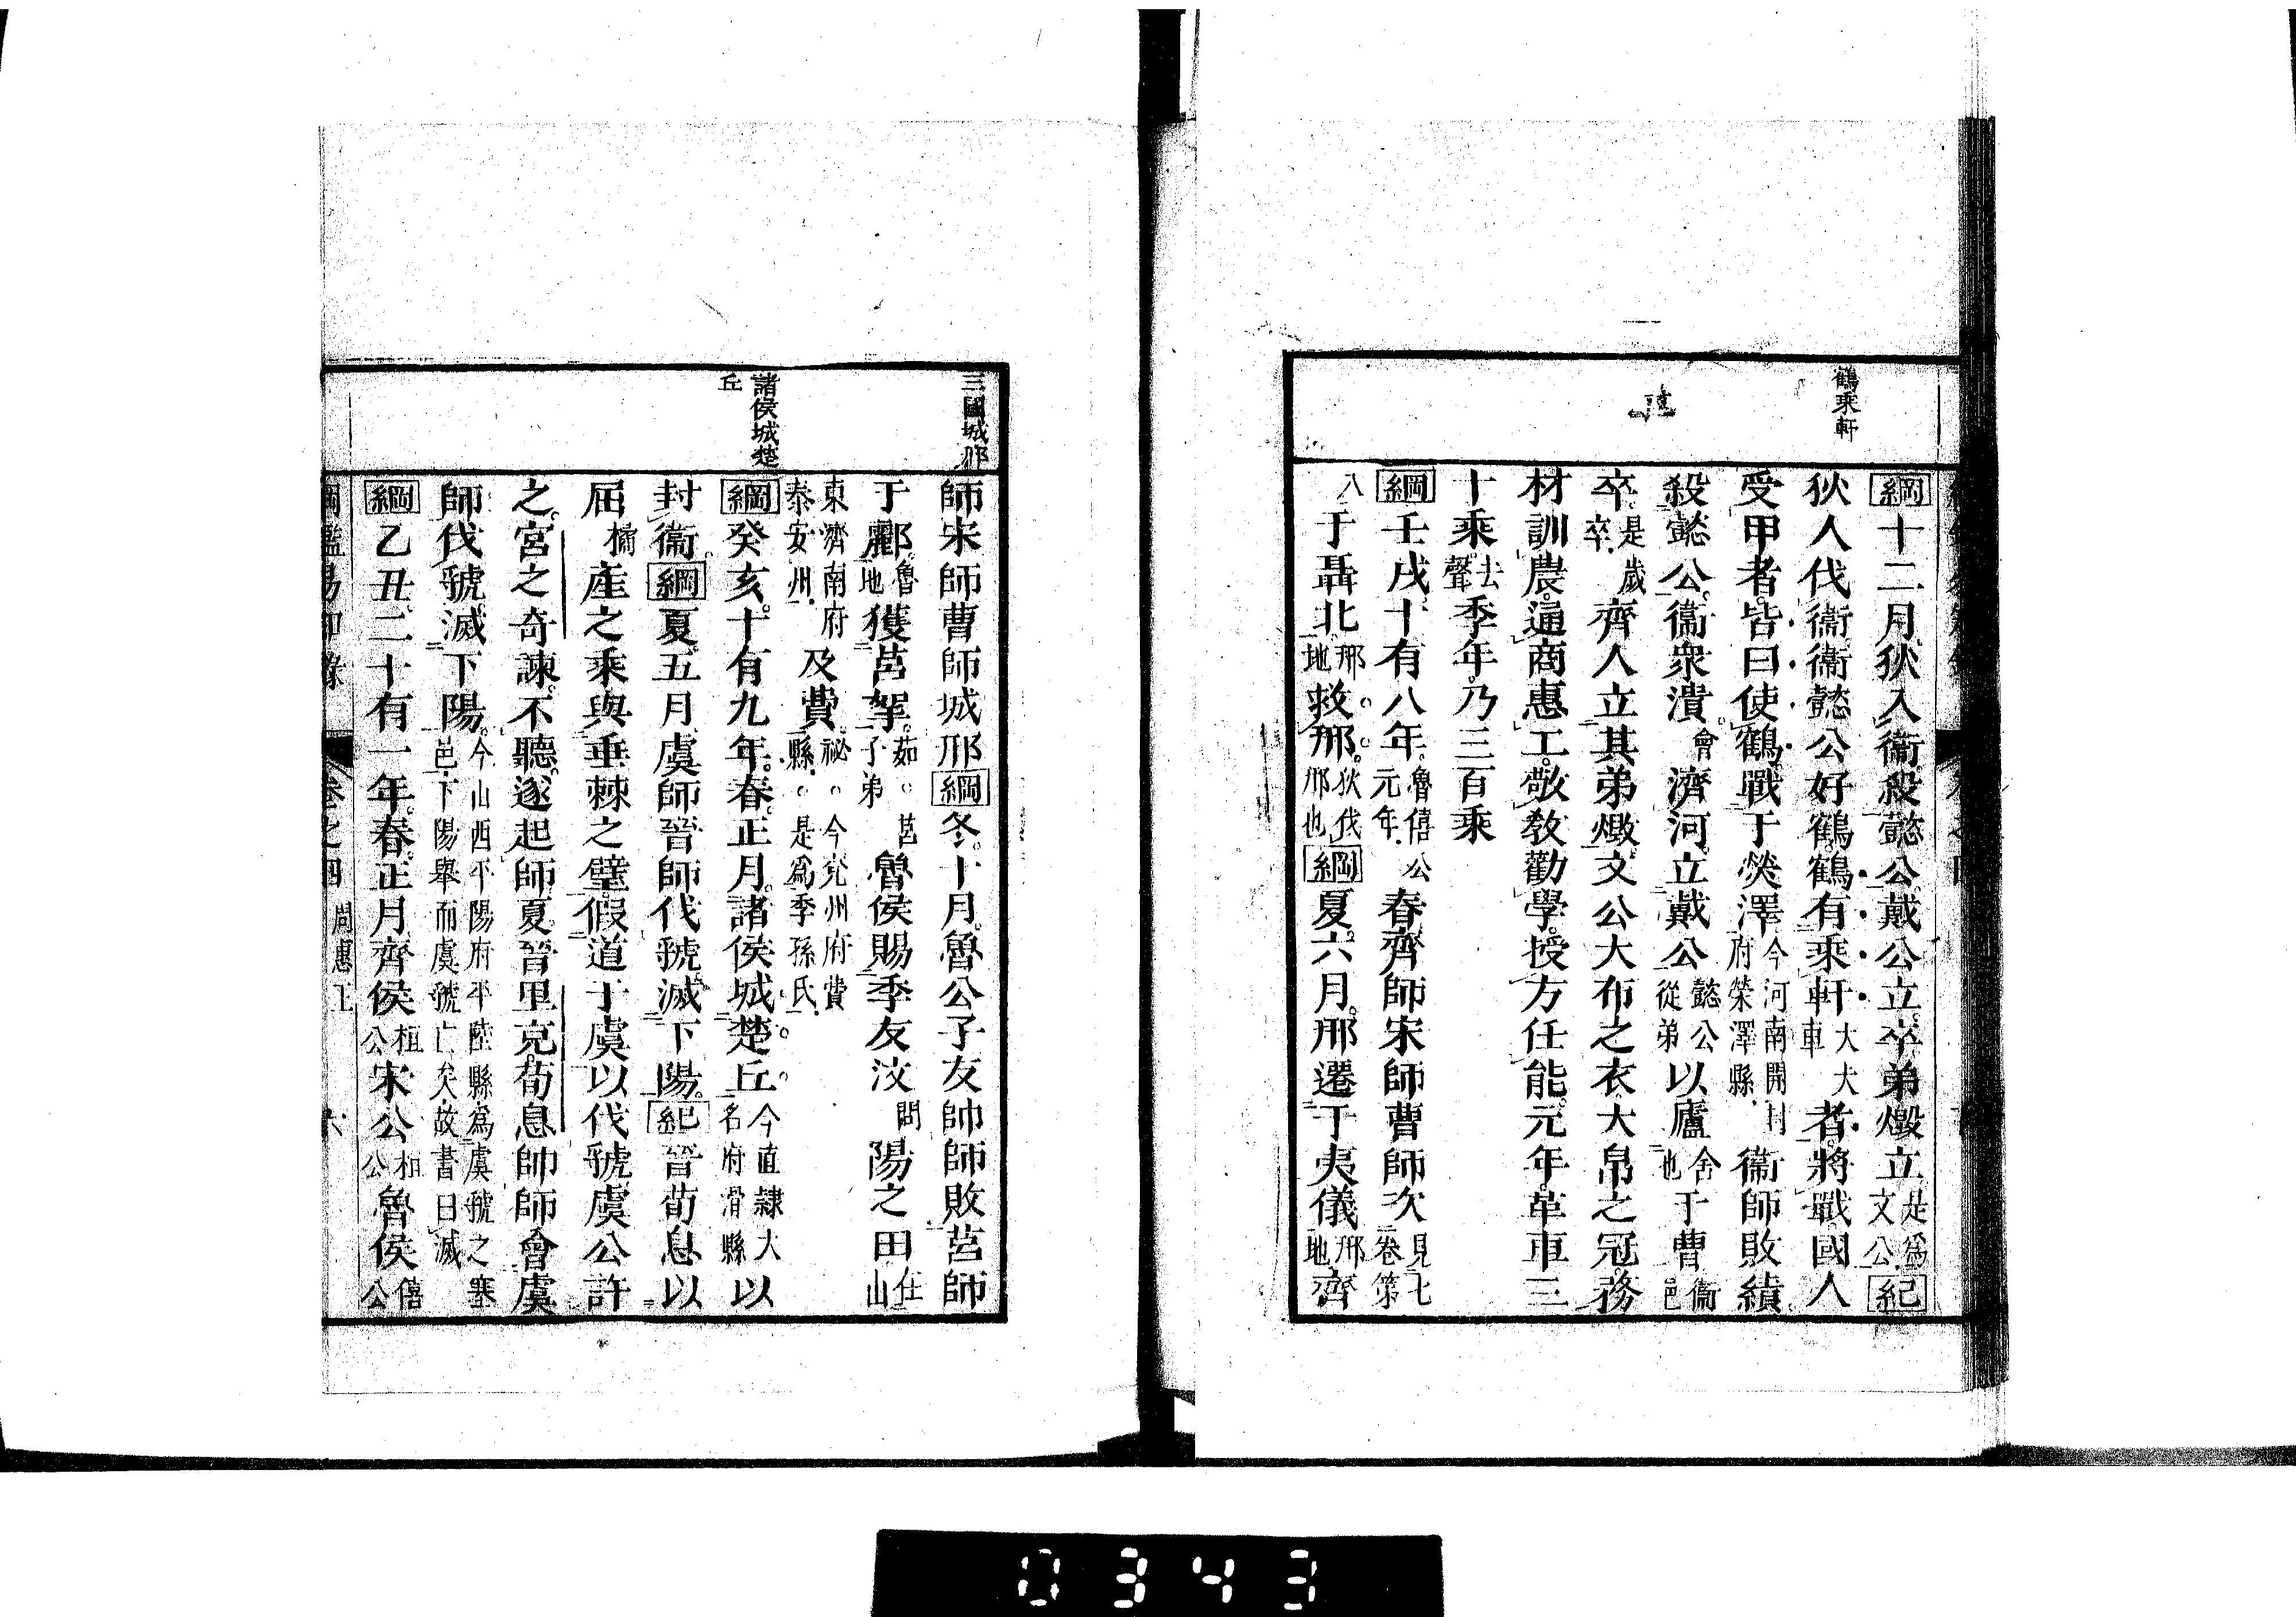 鶴乘軒
綱十二月狄入衞殺懿公戴公立卒弟燬立是爲文公紀
狄人伐衞衞懿公好鶴鶴有乘軒大夫車者將戰國人
受甲者皆曰使鶴戰于熒澤今河南開封府榮澤縣衞師敗績
殺懿公衞衆潰會濟河立戴公懿公從弟以廬舍也于曹衞邑
卒是歲卒齊人立其弟燬文公大布之衣大帛之冠務
材訓農通商惠工敬敎勸學授方任能元年革車三
十乘去聲季年乃三百乘
綱壬戌十有八年魯僖公元年春齊師宋師曹師次見七卷第
八于聶北邢地救邢狄伐邢也綱夏六月邢遷于夷儀邢地齊
三國城邢
諸侯城楚丘
師宋師曹師城邢綱冬十月魯公子友帥師敗莒師
于酈魯地獲莒挐茹。莒子弟魯侯賜季友汶問陽之田在山
東濟南府泰安州及費祕。今兖州府費縣。是爲季孫氏
綱癸亥十有九年春正月諸侯城楚丘今直隷大名府滑縣以
封衞綱夏五月虞師晉師伐虢滅下陽紀晉荀息以
屈橘產之乘與垂棘之璧假道于虞以伐虢虞公許
之宮之奇諫不聽遂起師夏晉里克荀息帥師會虞
師伐虢滅下陽今山西平陽府平陸縣爲虞虢之塞邑下陽舉而虞虢亡矣故書曰滅
綱乙丑二十有一年春正月齊侯桓公宋公桓公魯侯僖公
綱鑑易知錄 卷之四 周惠王 六
0343